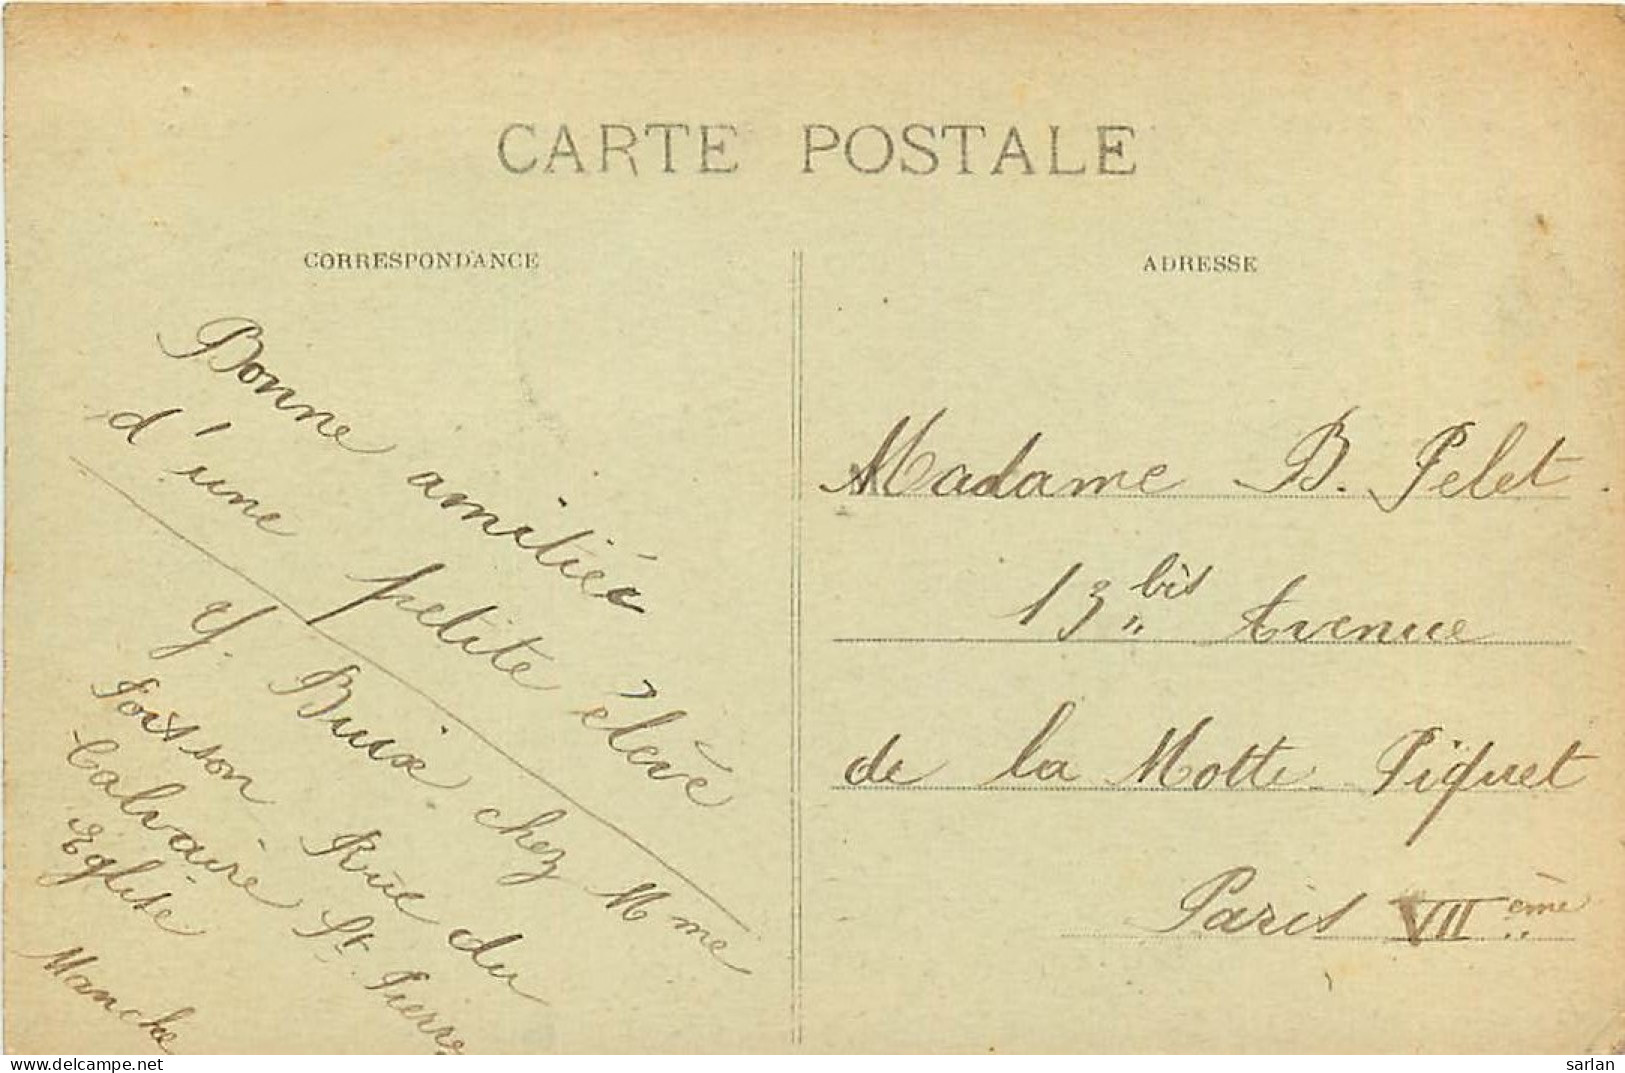 CARTE POSTALE
CORRESPONDANCE
Bonne amitiée
d'une petite élève
Y. Buix chez Mme
Poisson Rue du
Calvaire St Pierre
Eglise
Manche
ADRESSE
Madame B. Pelet.
13 bis Avenue
de la Motte Piquet
Paris VII ème
delcampe.net
sarlan